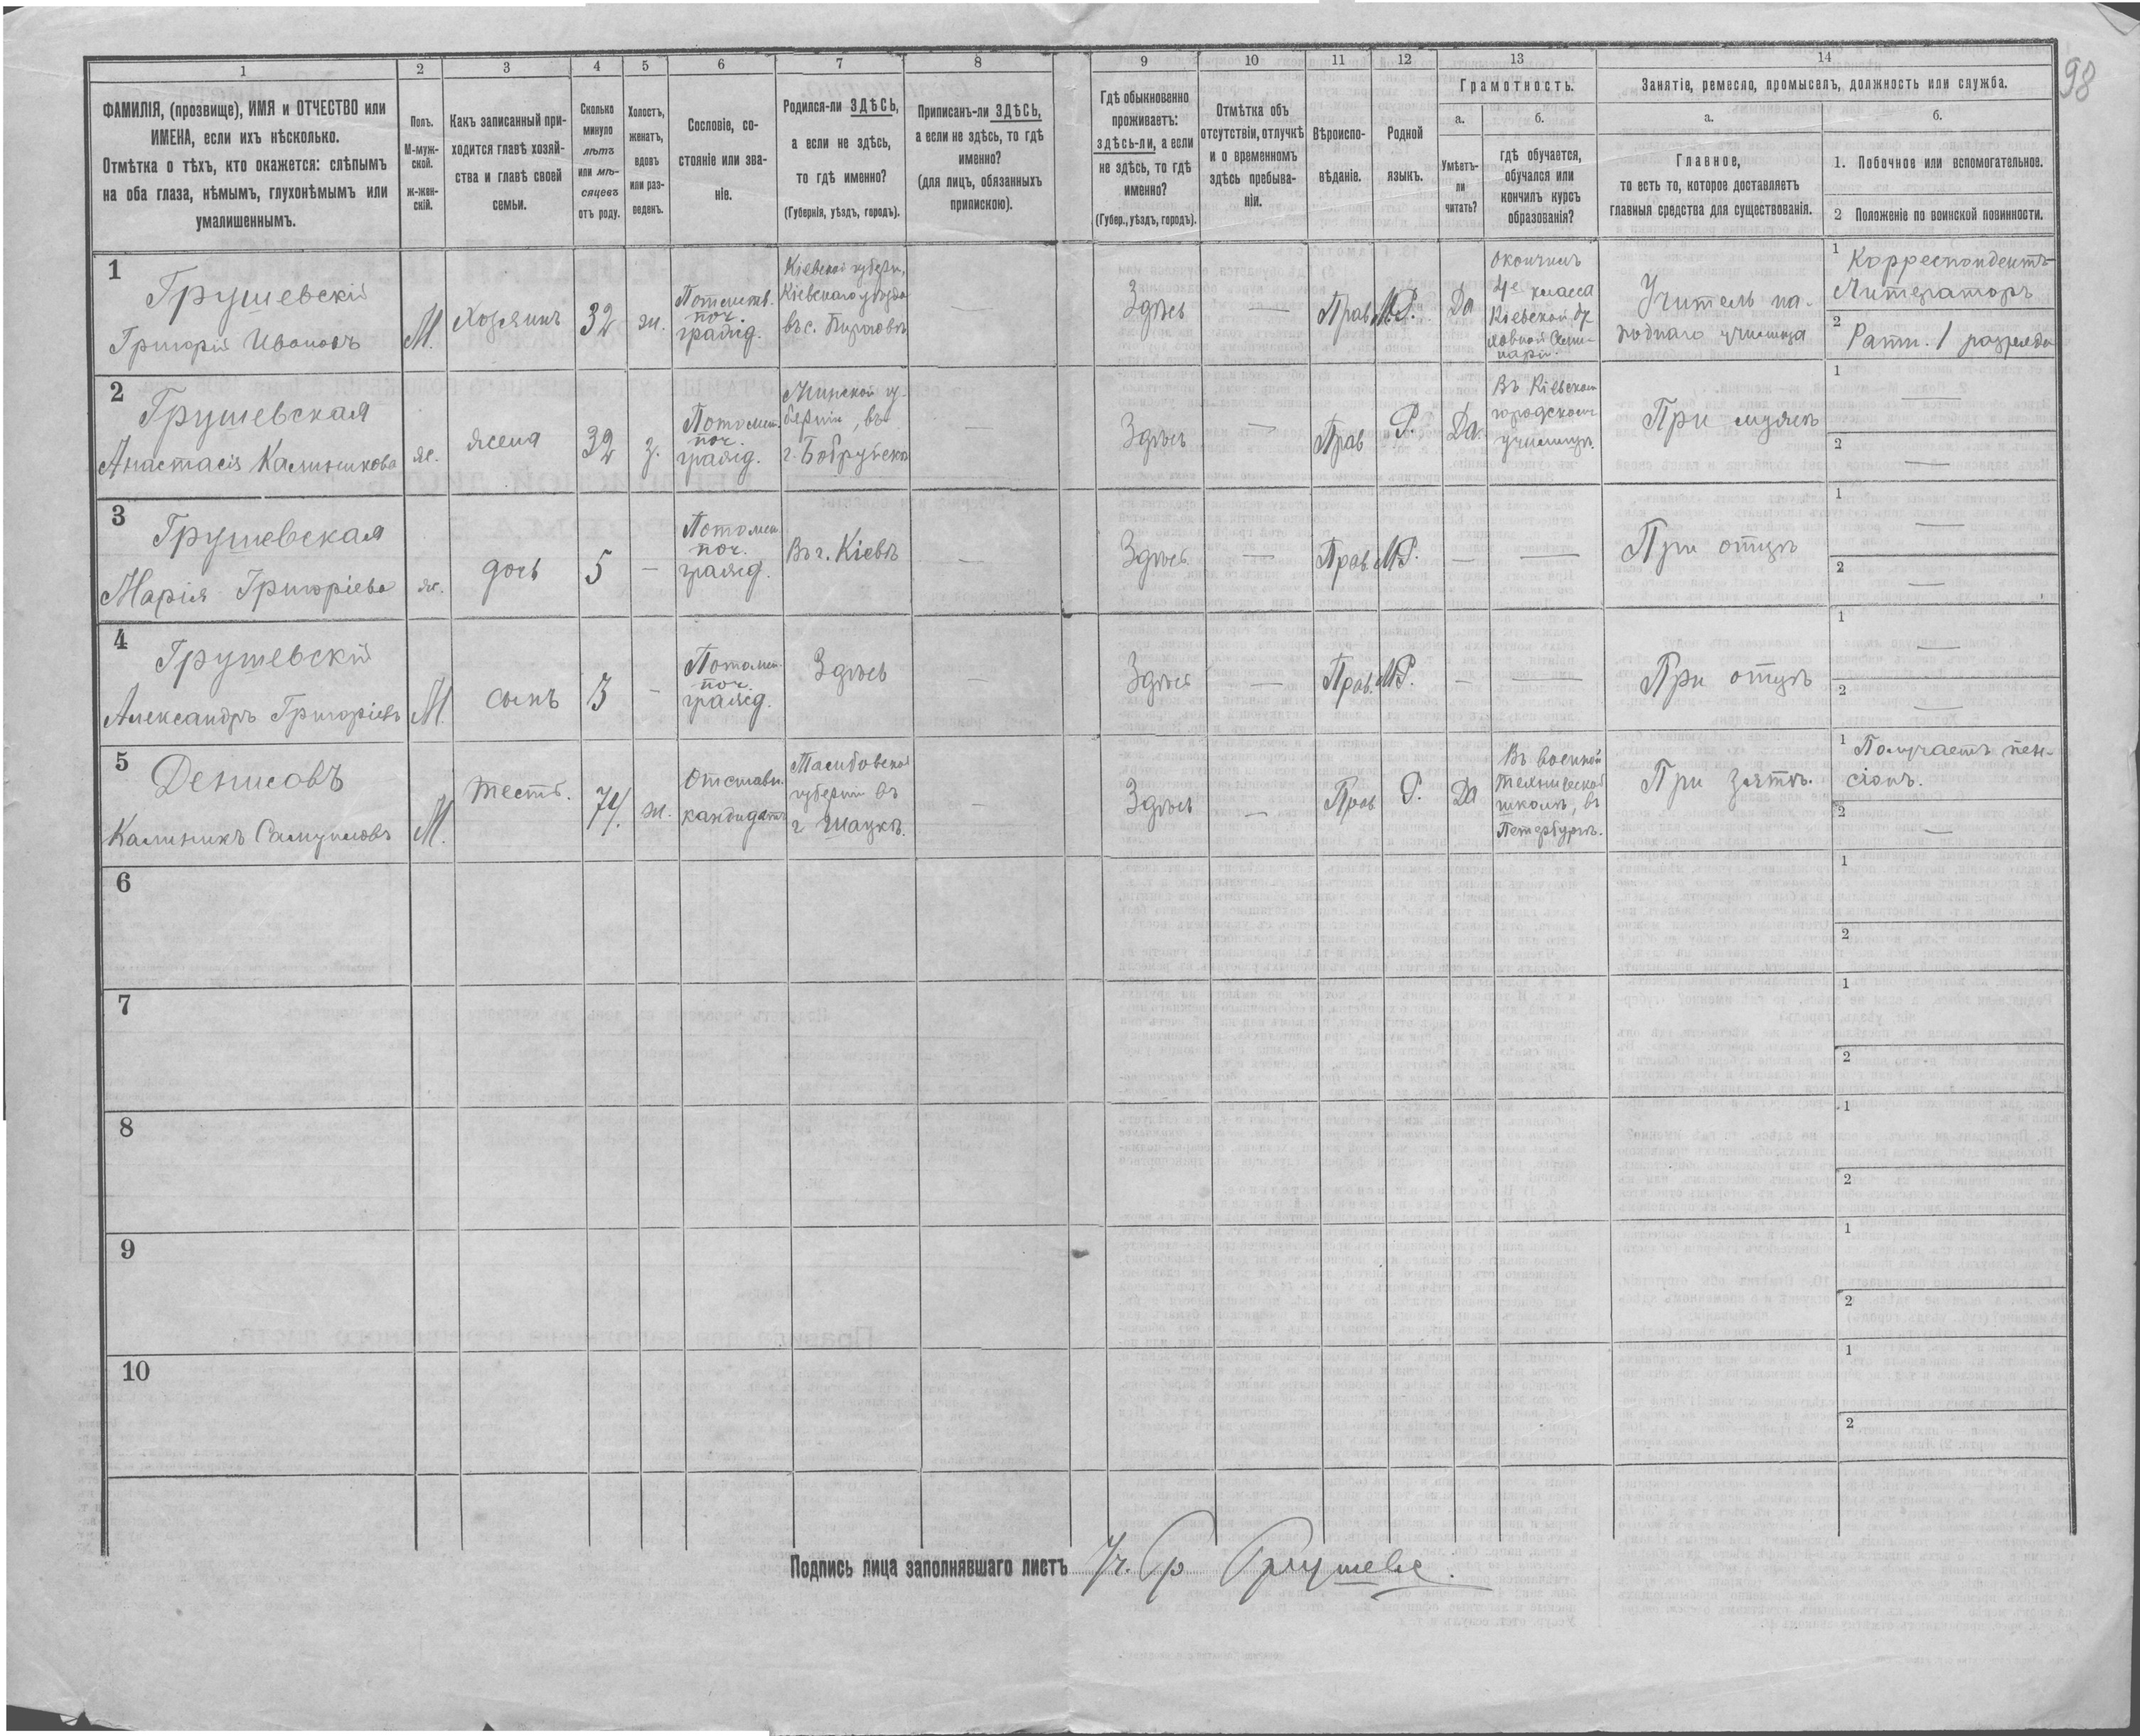 98
1
2
3
4
5
6
7
8
9
10
11
12
13
14
ФАМИЛІЯ, (прозвище), ИМЯ и ОТЧЕСТВО или
ИМЕНА, если ихъ нѣсколько.
Отмѣтка о тѣхъ, кто окажется: слѣпымъ
на оба глаза, нѣмымъ, глухонѣмымъ или
умалишеннымъ.
Полъ.
М-муж-
ской.
ж-жен-
скій.
Какъ записанный при-
ходится главѣ хозяй-
ства и главѣ своей
семьи.
Сколько
минуло
лѣтъ
или мѣ-
сяцевъ
отъ роду.
Холостъ,
женатъ,
вдовъ
или раз-
веденъ.
Сословіе, со-
стояніе или зва-
ніе.
Родился-ли ЗДѢСЬ,
а если не здѣсь,
то гдѣ именно?
(Губернія, уѣздъ, городъ).
Приписанъ-ли ЗДѢСЬ,
а если не здѣсь, то гдѣ
именно?
(для лицъ, обязанныхъ
припискою).
Гдѣ обыкновенно
проживаетъ:
здѣсь-ли, а если
не здѣсь, то гдѣ
именно?
(Губер., уѣздъ, городъ).
Отмѣтка объ
отсутствіи, отлучкѣ
и о временномъ
здѣсь пребыва-
ніи.
Вѣроиспо-
вѣданіе.
Родной
языкъ.
Грамотность.
а.
Умѣетъ-
ли
читать?
б.
гдѣ обучается,
обучался или
кончилъ курсъ
образованія?
Занятіе, ремесло, промыселъ, должность или служба.
а.
Главное,
то есть то, которое доставляетъ
главныя средства для существованія.
б.
1. Побочное или вспомогательное.
2 Положеніе по воинской повинности.
1
Грушевскій
Григорій Ивановъ
М.
Хозяинъ
32
ж.
Потомств.
поч.
гражд.
Кіевской губерн,
Кіевскаго уѣзда
въ с. Пироговѣ
—
Здѣсь
—
Прав.
М.Р.
Да
Окончилъ
4е класса
Кіевской ду
ховной Семи-
наріи.
Учитель на-
роднаго училища
1 Корреспондентъ-
Литераторъ
2 Ратн. 1 разряда
2
Грушевская
Анастасія Калиникова
ж.
жена
32
з.
Потомст.
поч.
гражд.
Минской гу-
берніи, въ
г. Бобруйскѣ
—
Здѣсь
—
Прав
Р.
Да.
Въ Кіевском
городском
училищѣ.
При мужѣ
1 —
2 —
3
Грушевская
Марія Григоріева
ж.
дочь
5
—
Потомст.
поч.
гражд.
Въ г. Кіевѣ
—
Здѣсь
—
Прав.
МР.
—
—
При отцѣ
1 —
2 —
4
Грушевскій
Александръ Григоріевъ
М
сынъ
3
-
Потомст.
поч.
гражд.
Здѣсь
—
Здѣсь
—
Прав.
МР.
—
—
При отцѣ
1 —
2 —
5
Денисовъ
Калиникъ Самуиловъ
М.
Тесть.
74.
ж.
Отставн.
кандидатъ
губерніи въ
г Шацкѣ.
—
Здѣсь
—
Прав
Р.
Да
Въ военной
технической
школѣ, въ
Петербургѣ.
При зятѣ.
1 Получаетъ пен-
сіонъ.
2 —
6
1
2
7
1
2
8
1
2
9
1
2
10
1
2
Подпись лица заполнявшаго листъ Уч. Гр Грушевс.